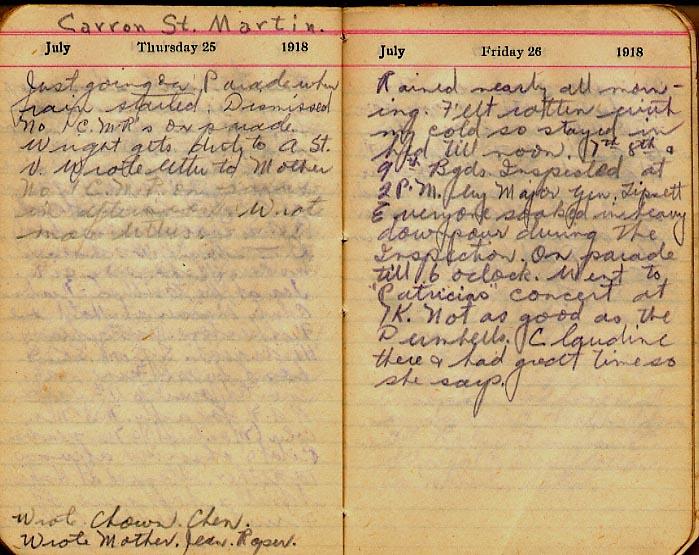 Carron St. Martin.
July Thursday 25 1918
Just going on Parade when
rain started. Dismissed
No 1 C.M.R's on parade.
Wright gets duty to A St.
V. Wrote letter to Mother
No 1 C.M.R. on
in afternoon. Wrote
Wrote. Chown. Chen.
Wrote Mother. Jean. Roper.
July Friday 26 1918
Rained nearly all morn-
ing. Felt rotten with
my cold so stayed in
bed till noon. 7th 8th &
9th Bgds Inspected at
2 P.M. by Major Gen. Lipsett
Everyone soaked in heavy
down pour during the
Inspection. On parade
till 6 oclock. Went to
"Patricias" concert at
7K. Not as good as the
Dumbells. Claudine
there & had great time so
she says.